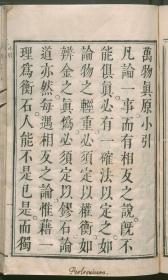 萬物眞原小引
凡論一事而有相反之說旣不
能俱眞必有一確法以定之如
論物之輕重必須定以權衡如
辨金之眞僞必須定以鏐石論
道亦然每遇相反之論惟藉一
理爲衡石人能不是也是而獨